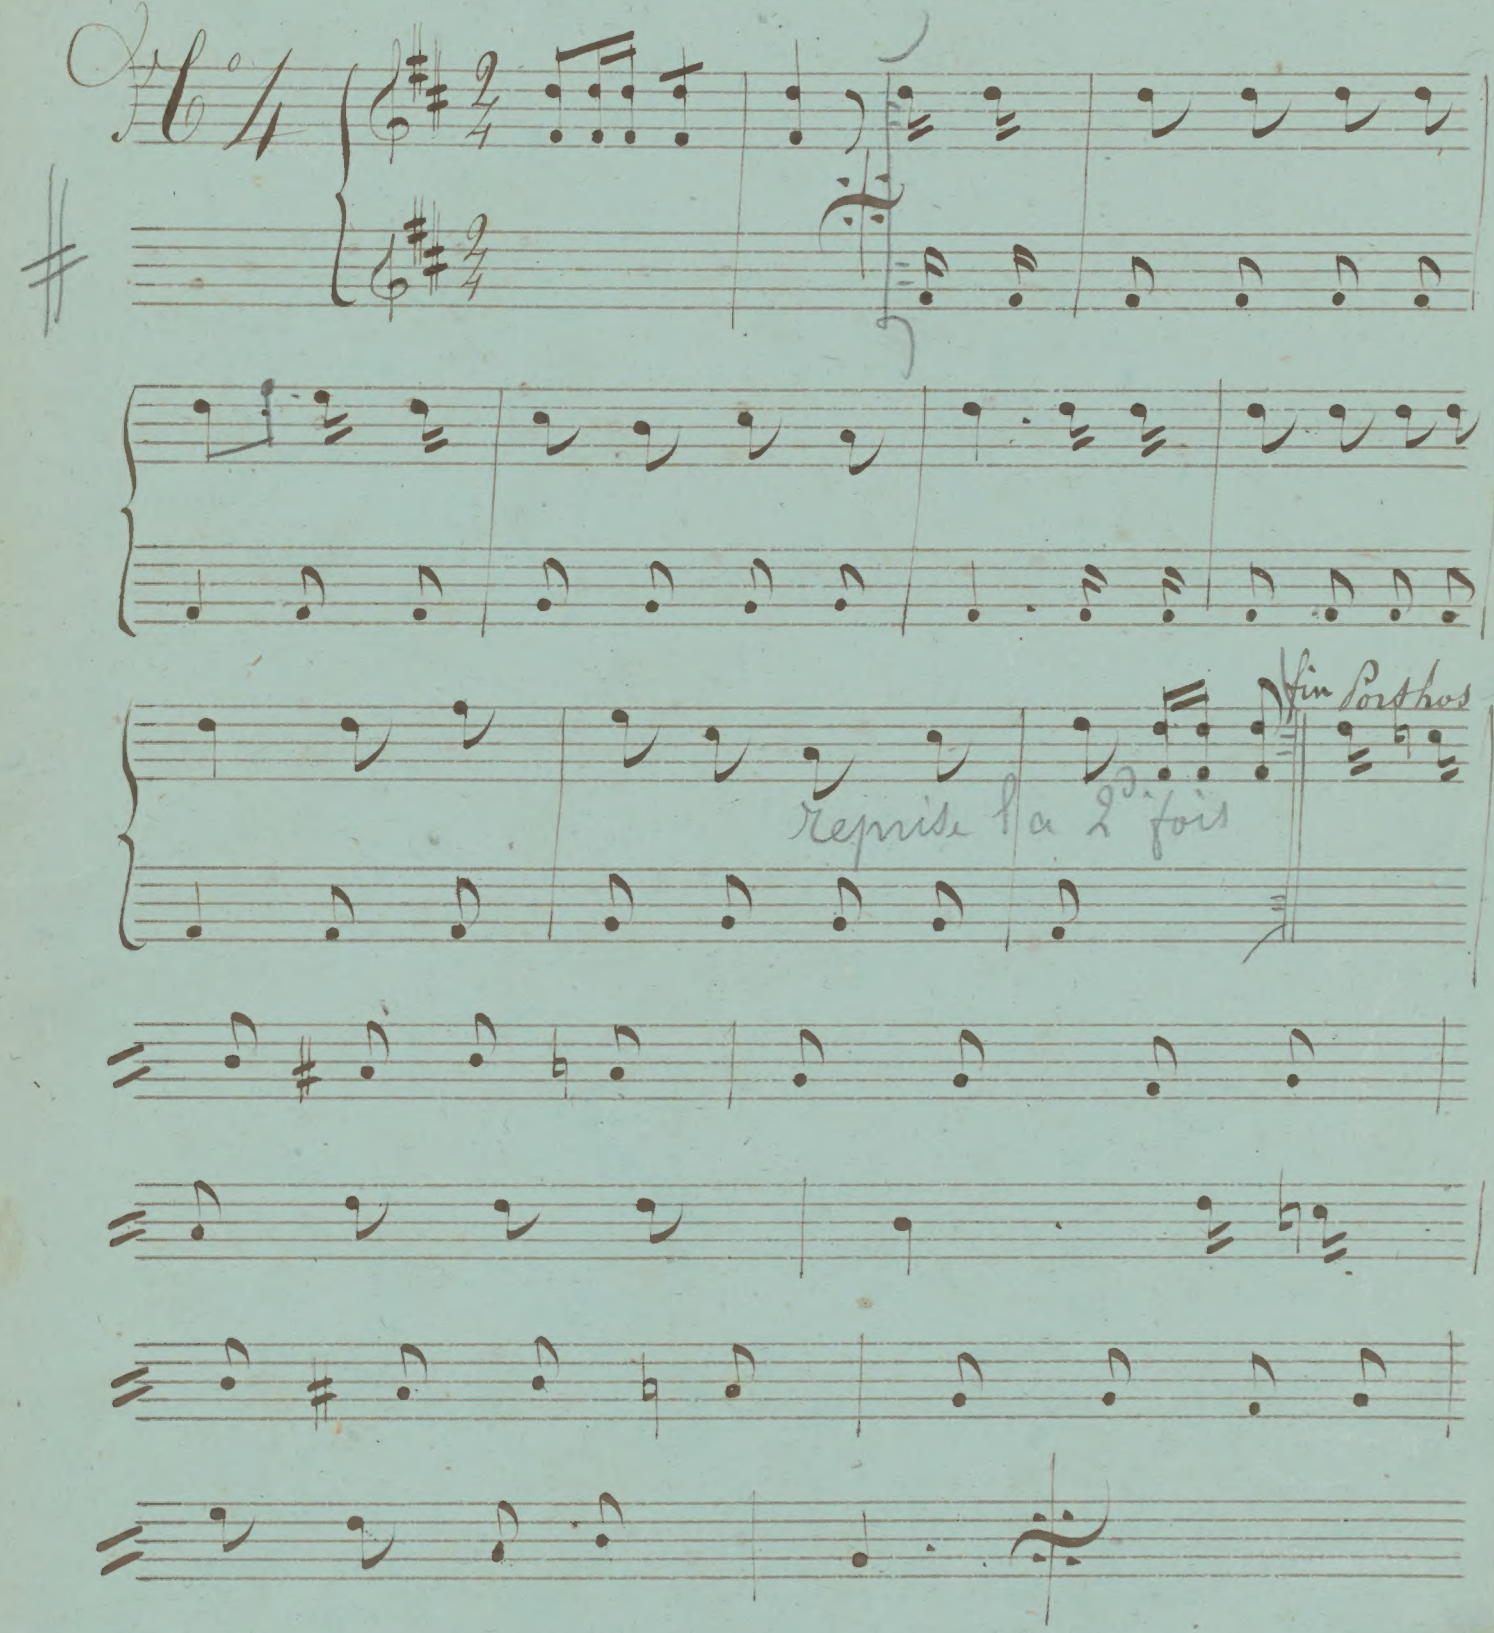 No 4
2/4
2/4
fin Porthos
reprise la 2d fois